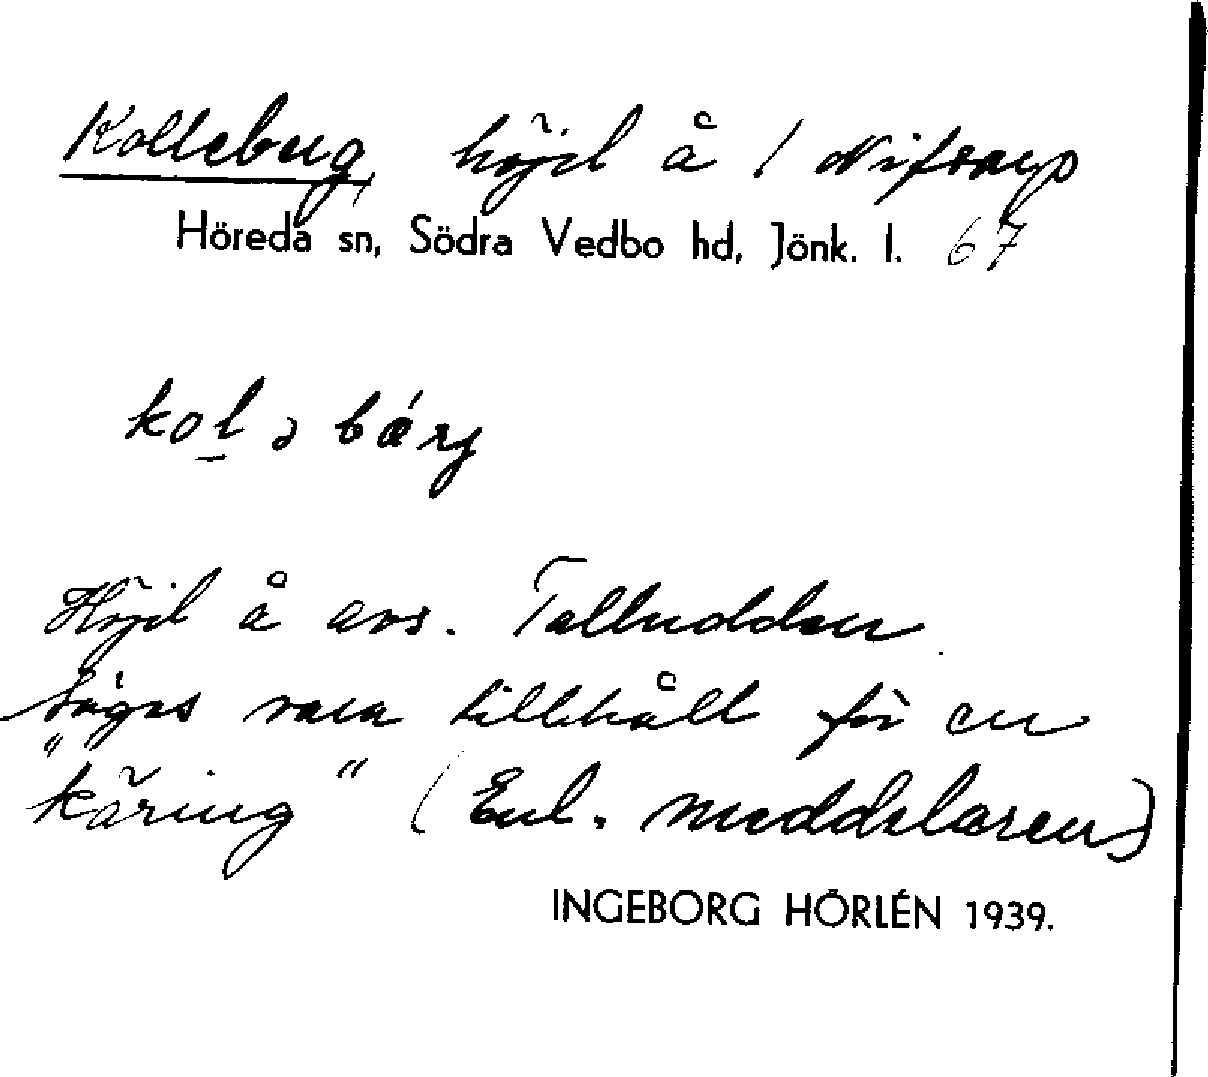 Kolleberg, höjd å 1 Nifsarp
Höreda sn, Södra Vedbo hd, Jönk. l. 67
kolə bärj
Höjd å avs. Talludden
säges vara tillhåll för en
"käring" (Enl. meddelaren)
INGEBORG HÖRLÉN 1939.